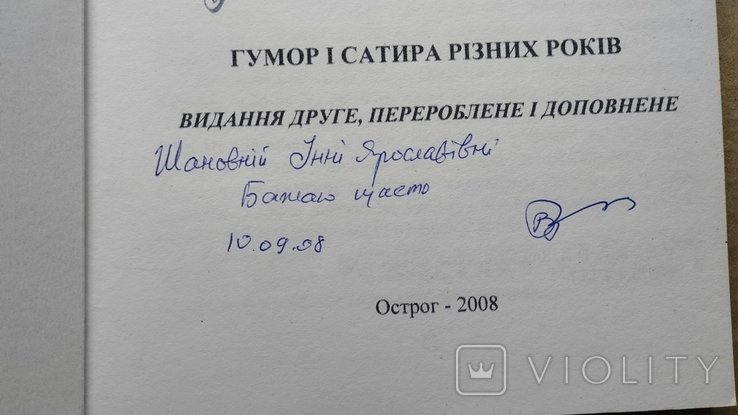 ГУМОР І САТИРА РІЗНИХ РОКІВ
ВИДАННЯ ДРУГЕ, ПЕРЕРОБЛЕНЕ І ДОПОВНЕНЕ
Шановній Інні Ярославівні
Бажаю щастя
10.09.08
Острог - 2008
VIOLITY